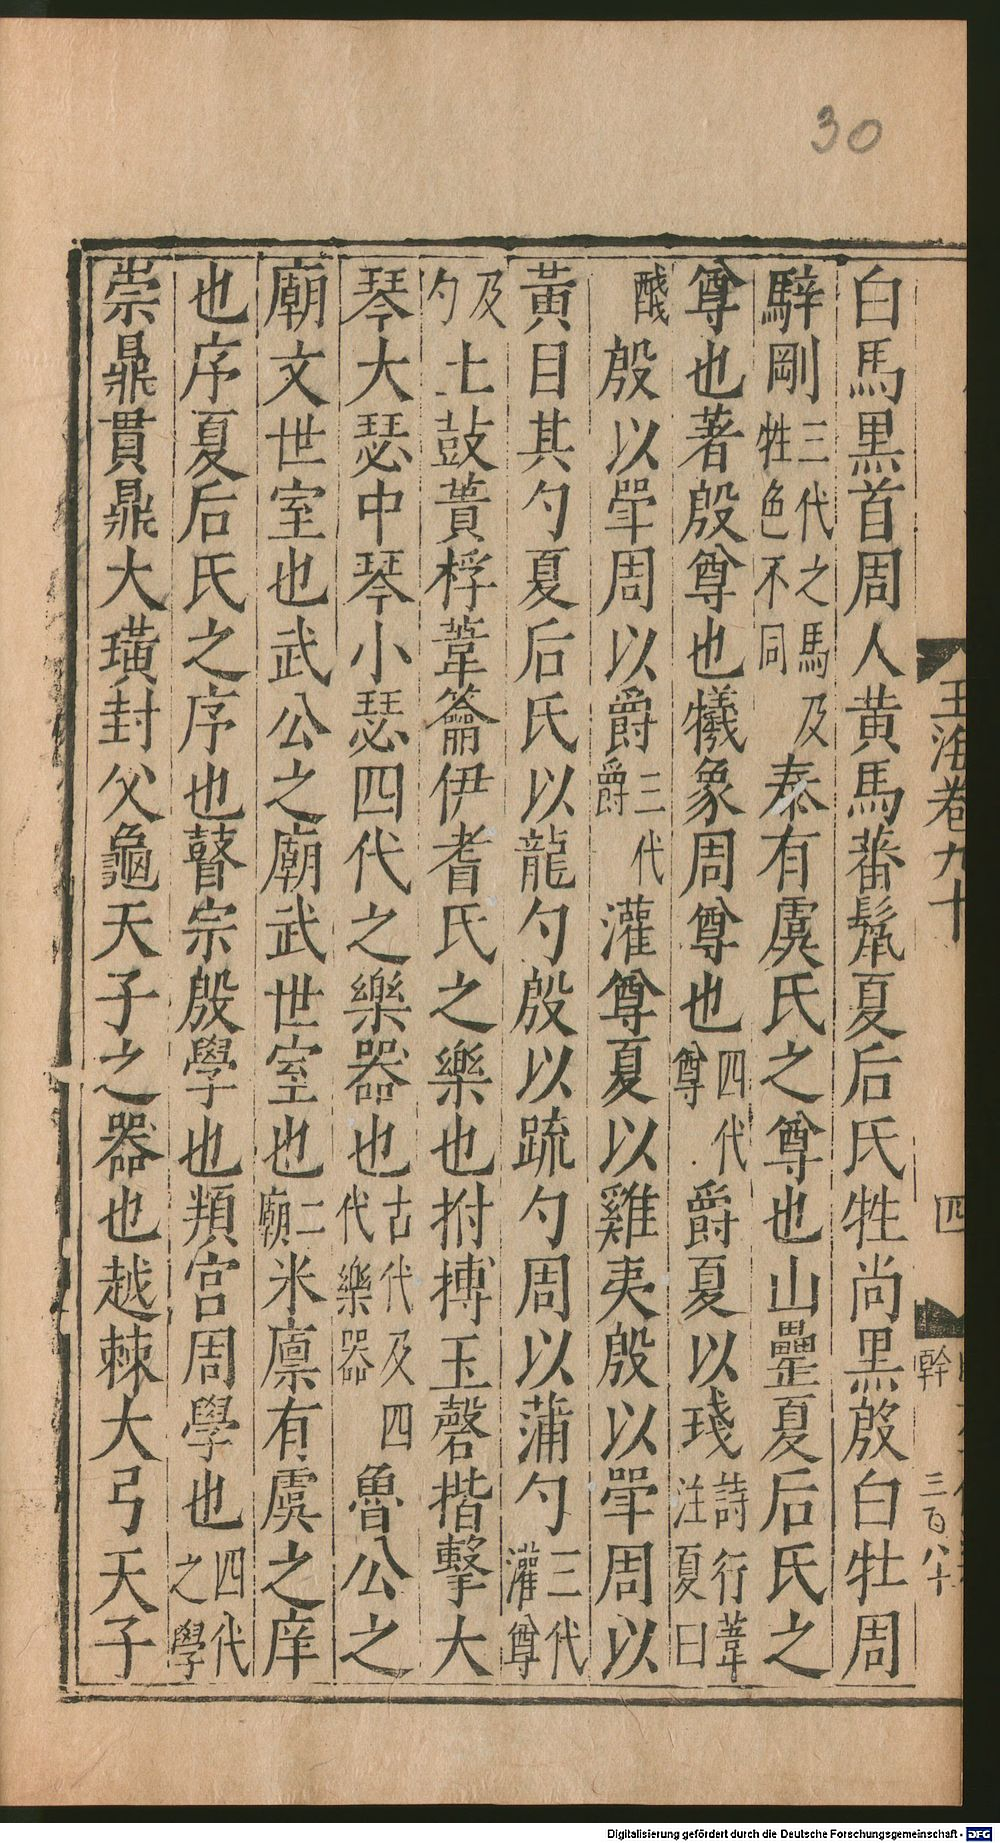 30
玉海卷九十
四
幹
三百八十
白馬黒首周人黄馬蕃鬛夏后氏牲尚黒殷白牡周
騂剛三代之馬及牲色不同泰有虞氏之尊也山罍夏后氏之
尊也著殷尊也犧象周尊也四代尊爵夏以琖詩行葦注夏曰
醆殷以斚周以爵三代爵灌尊夏以雞夷殷以斚周以
黄目其勺夏后氏以龍勺殷以疏勺周以蒲勺三代灌尊
及勺土鼓蕢桴葦籥伊耆氏之樂也拊搏玉磬揩擊大
琴大瑟中琴小瑟四代之樂器也古代及四代樂器魯公之
廟文世室也武公之廟武世室也二廟米廪有虞之庠
也序夏后氏之序也瞽宗殷學也頖宫周學也四代之學
崇鼎貫鼎大璜封父龜天子之器也越棘大弓天子
Digitalisierung gefördert durch die Deutsche Forschungsgemeinschaft - DFG